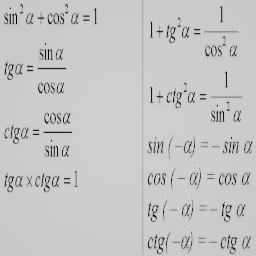 sin²α + cos²α = 1
tgα = sinα / cosα
ctgα = cosα / sinα
tgα × ctgα = 1
1 + tg²α = 1 / cos²α
1 + ctg²α = 1 / sin²α
sin (−α) = − sin α
cos (− α) = cos α
tg (− α) = − tg α
ctg(−α) = − ctg α